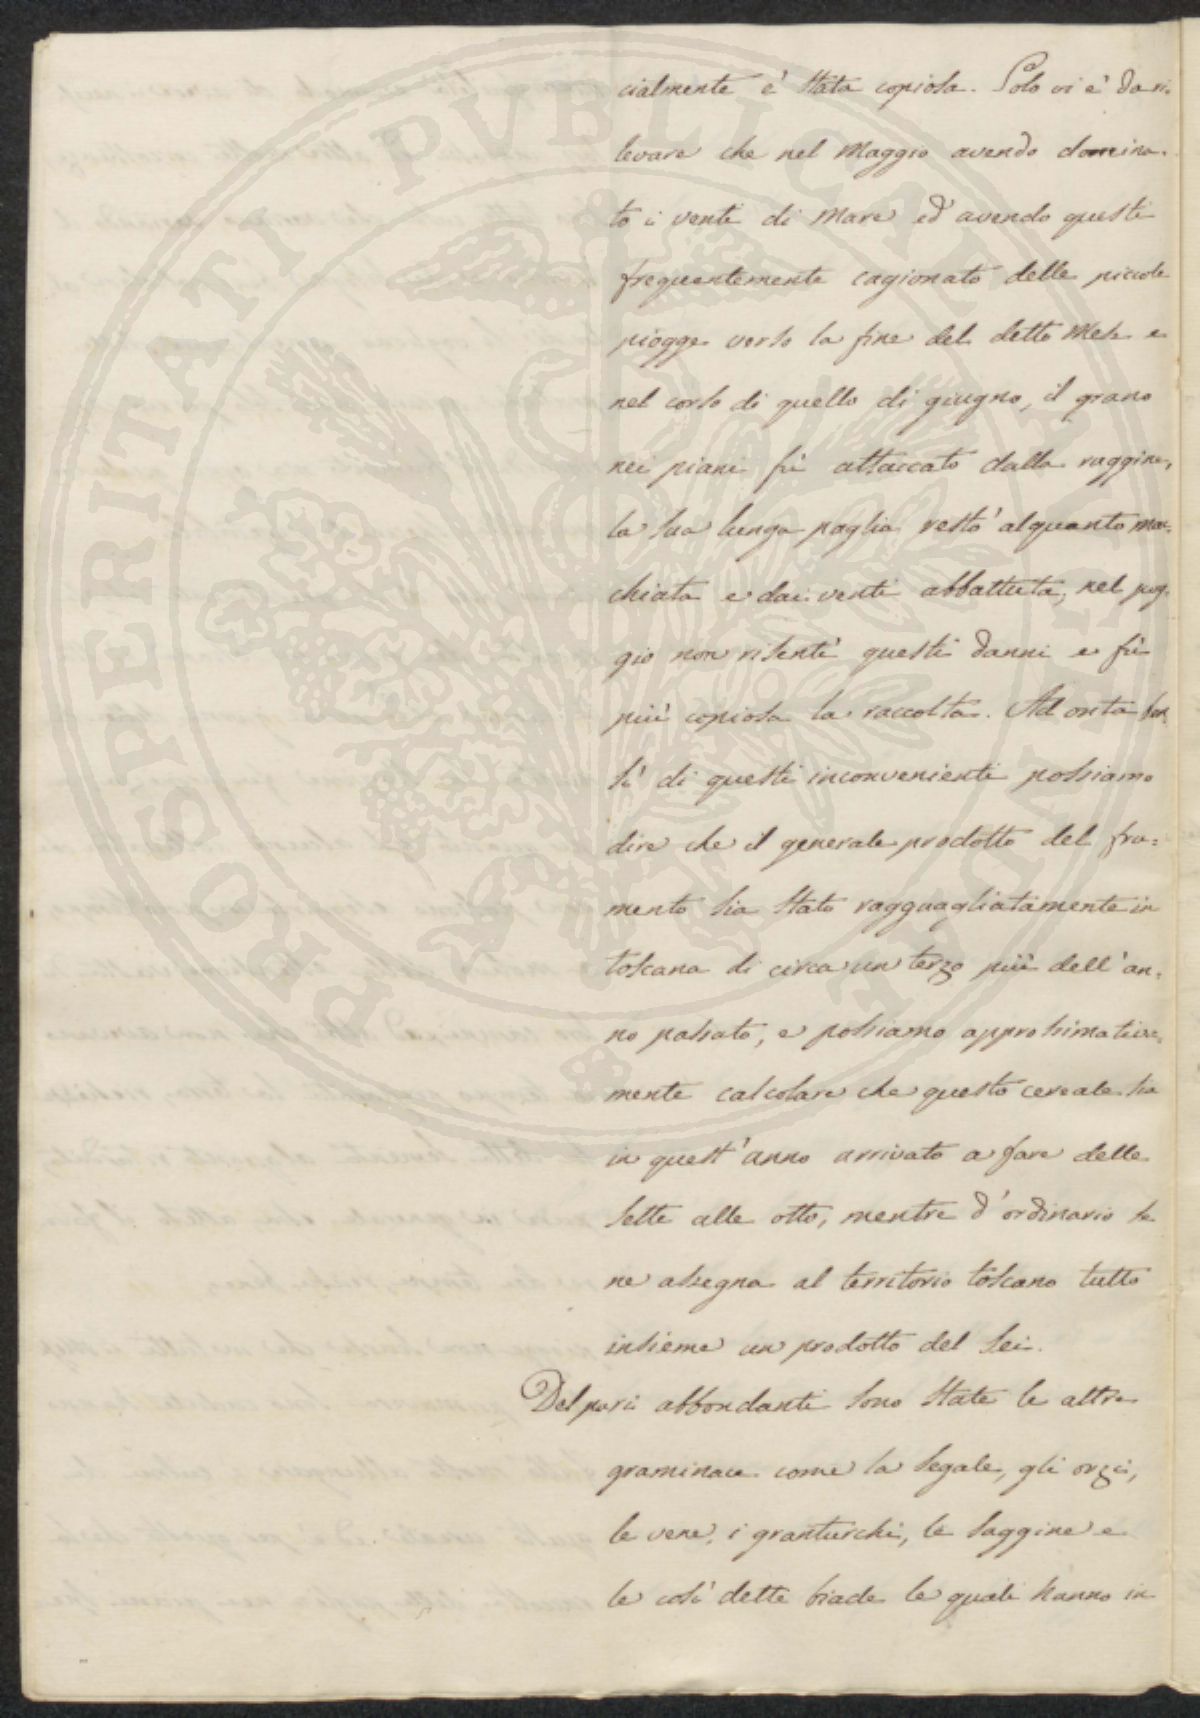 cialmente è stata copiosa. Solo vi è da ri-
levare che nel Maggio avendo domina-
to i venti di Mare ed avendo questi
frequentemente cagionato delle piccole
piogge verso la fine del detto Mese e
nel corso di quello di giugno, il grano
nei piani fù attaccato dalla ruggine,
la sua lunga paglia restò alquanto mac-
chiata e dai venti abbattuta; nel pog-
gio non risentì questi danni e fù
più copiosa la raccolta. Ad onta per-
sì di questi inconvenienti possiamo
dire che il generale prodotto del fru=
mento sia stato ragguagliatamente in
toscana di circa un terzo più dell'an-
no passato, e possiamo approssimativa-
mente calcolare che questo cereale sia
in quest'anno arrivato a fare delle
sette alle otto, mentre d'ordinario se
ne assegna al territorio toscano tutto
insieme un prodotto del sei.
Del pari abbondanti sono state le altre
graminacee come la segale, gli orzi,
le vene, i granturchi, le saggine e
le così dette biade le quali hanno in
PROSPERITATI PVBLICAE AVGENDAE